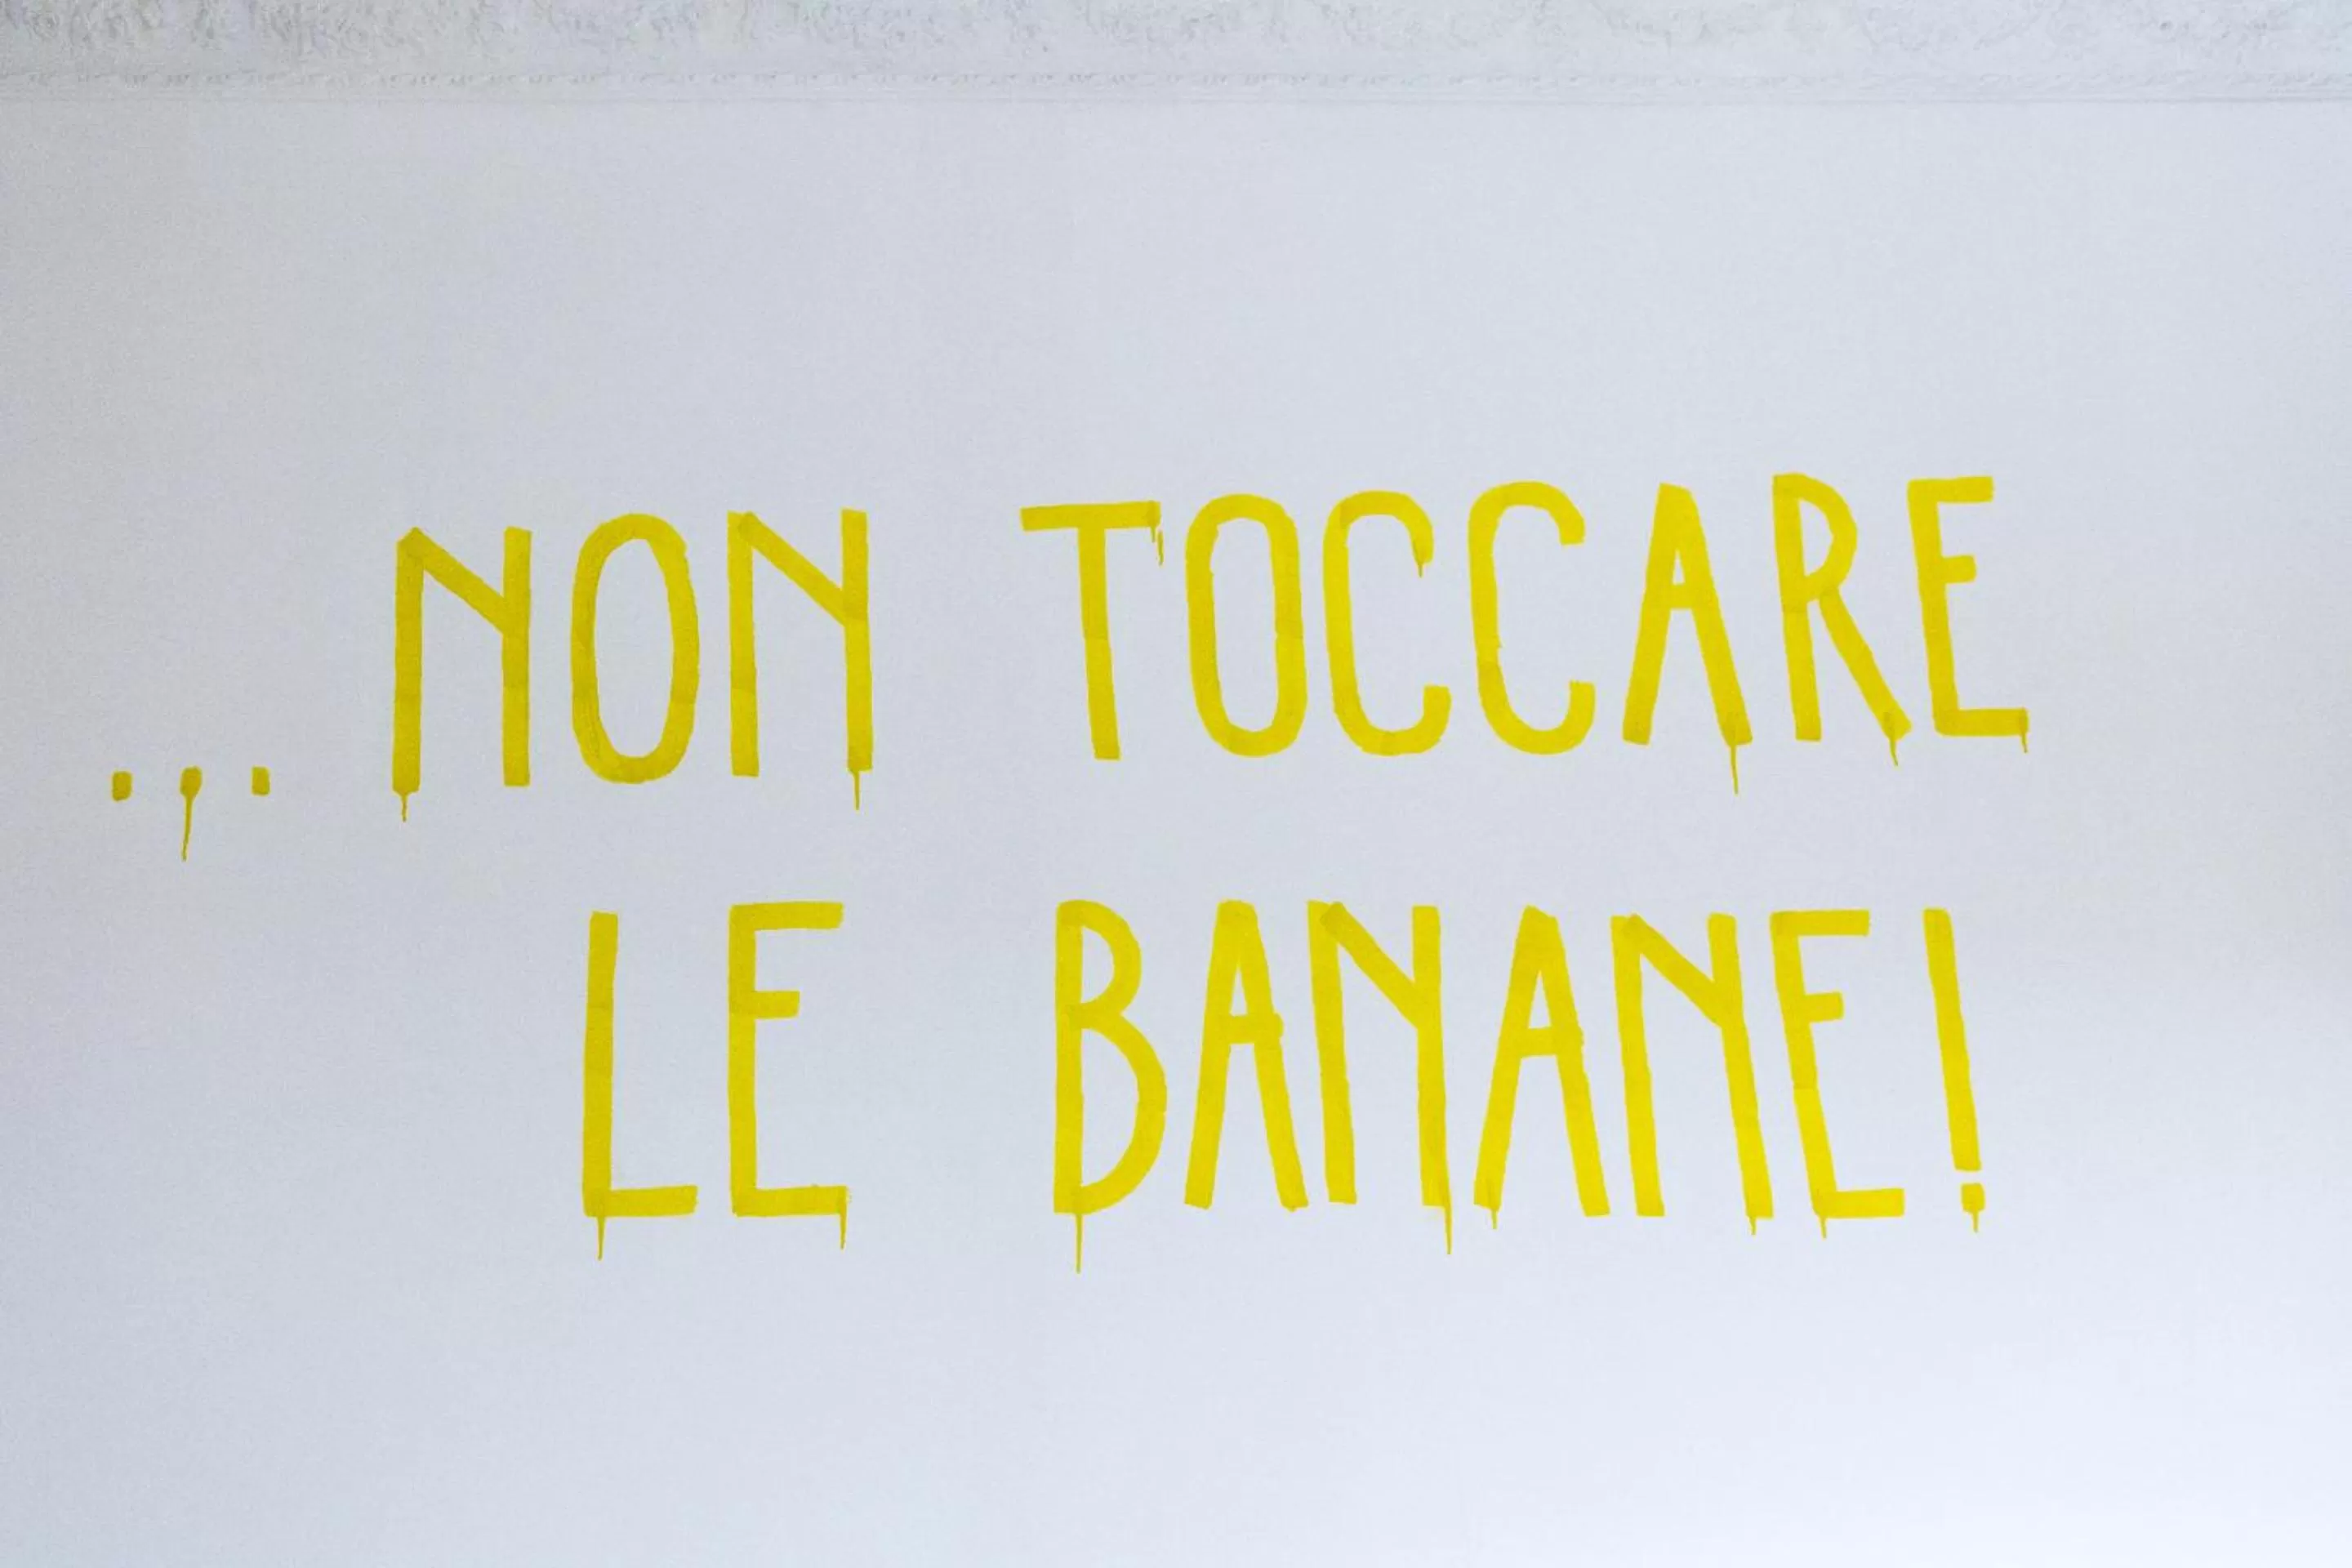 ...NON TOCCARE
LE BANANE!